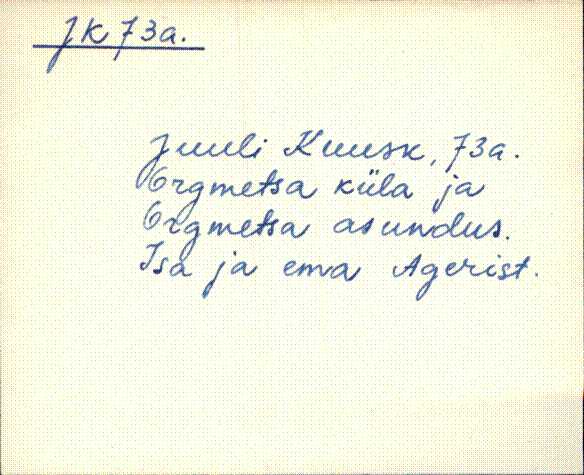 JK 73a.
Juuli Kuusk, 73a.
Orgmetsa küla ja
Orgmetsa asundus.
Isa ja ema Agerist.